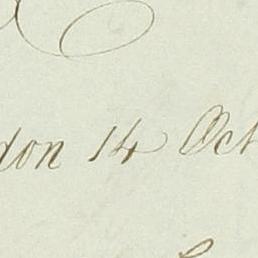 don 14 Oct